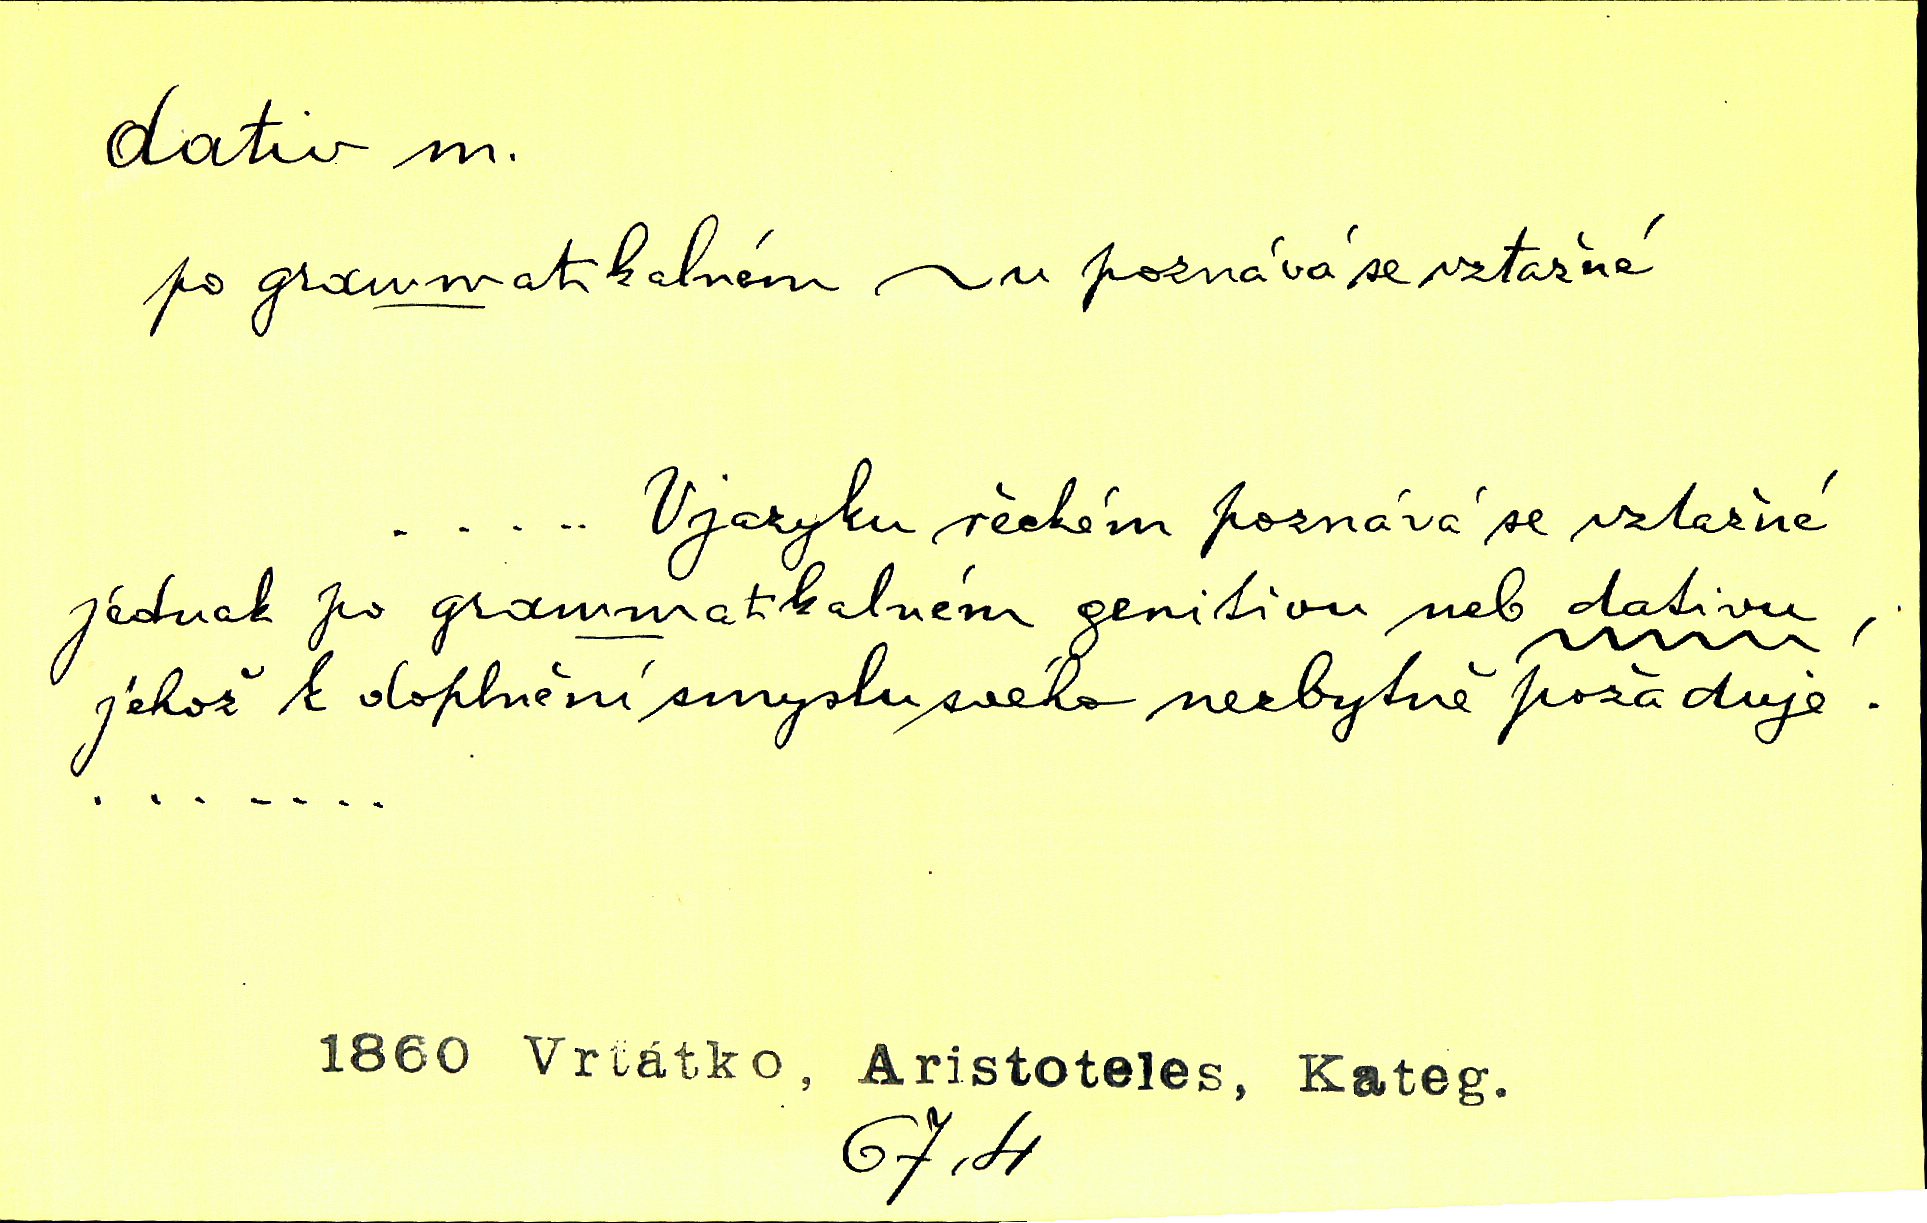 dativ m.
po grammatikalném ~u poznává se vztažné
. . . . .. V jazyku řeckém poznává se vztažné
jednak po grammatikalném genitivu neb dativu,
jehož k doplnění smyslu svého nezbytně požaduje.
. . . . . . .
1860 Vrťátko, Aristoteles, Kateg.
67,4